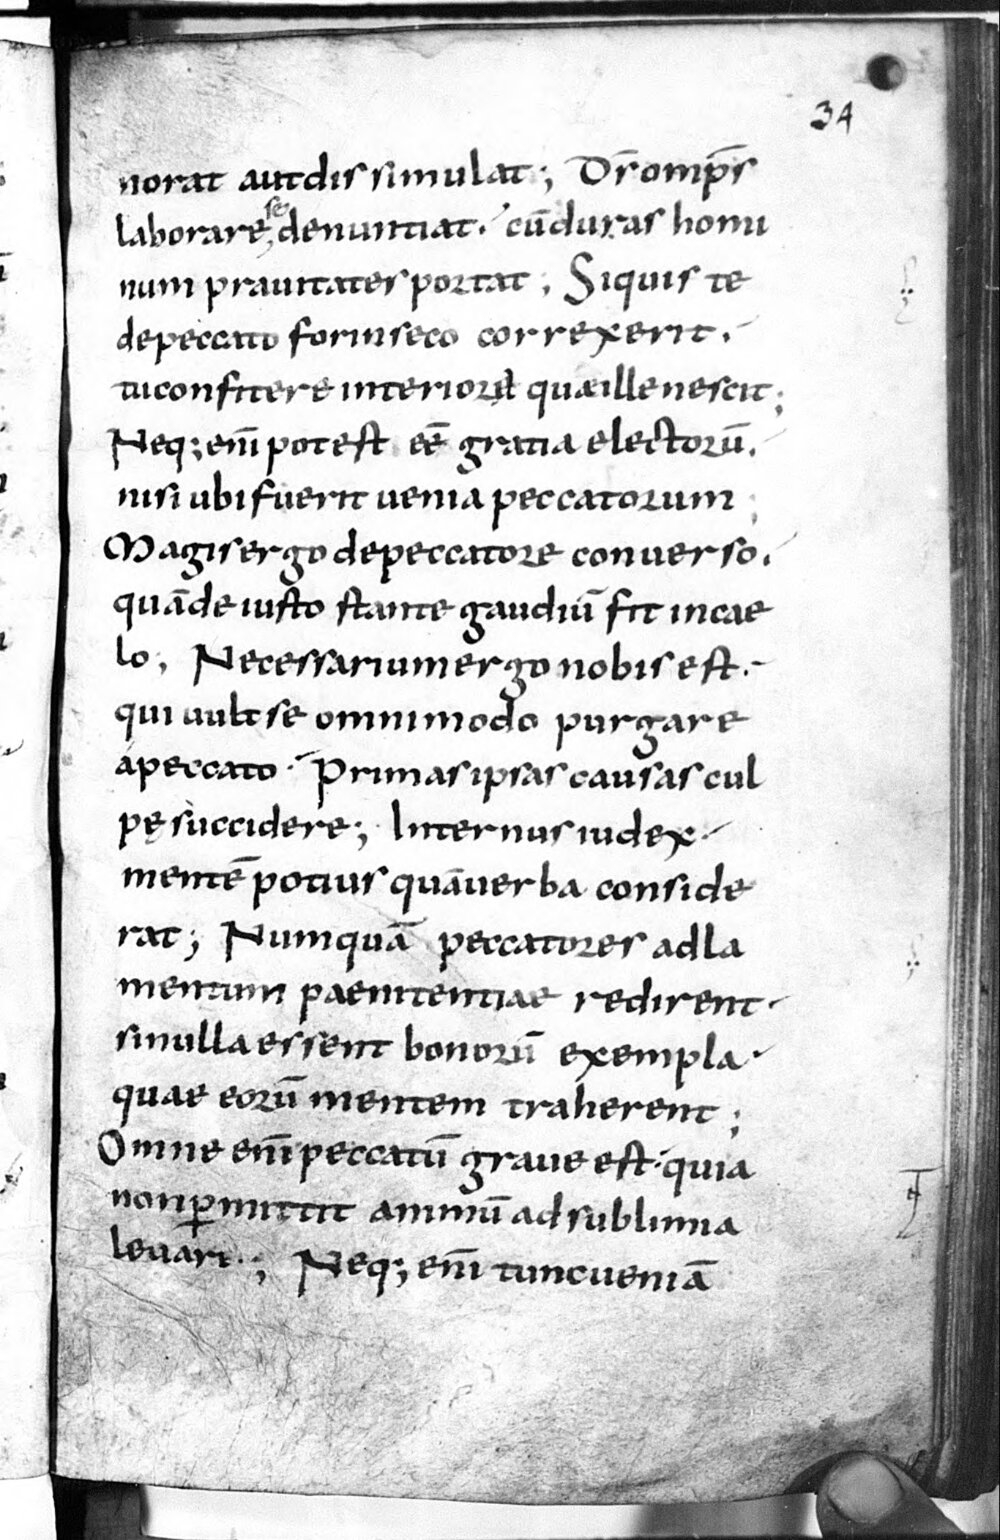 34
norat aut dissimulat; Dſ omp̄s
laborare se denuntiat. cū duras homi
num prauitates portat; Si quis te
de peccato forinseco correxerit.
tu confitere interiora quae ille nescit;
Neq; enī potest eē gratia electorū.
nisi ubi fuerit uenia peccatorum;
Magis ergo de peccatore conuerso.
quā de iusto stante gaudiū fit in cae
lo; Necessarium ergo nobis est.
qui uult se omnimodo purgare
a peccato. Primas ipsas causas cul
pę succidere; Internus iudex.
mentē potius quā uerba conside
rat; Numquā peccatores ad la
mentum paenitentiae redirent.
si nulla essent bonorū exempla.
quae eorū mentem traherent;
Omne enī peccatū graue est. quia
non p̲mittit animū ad sublimia
leuari.; Neq; enī tunc ueniā